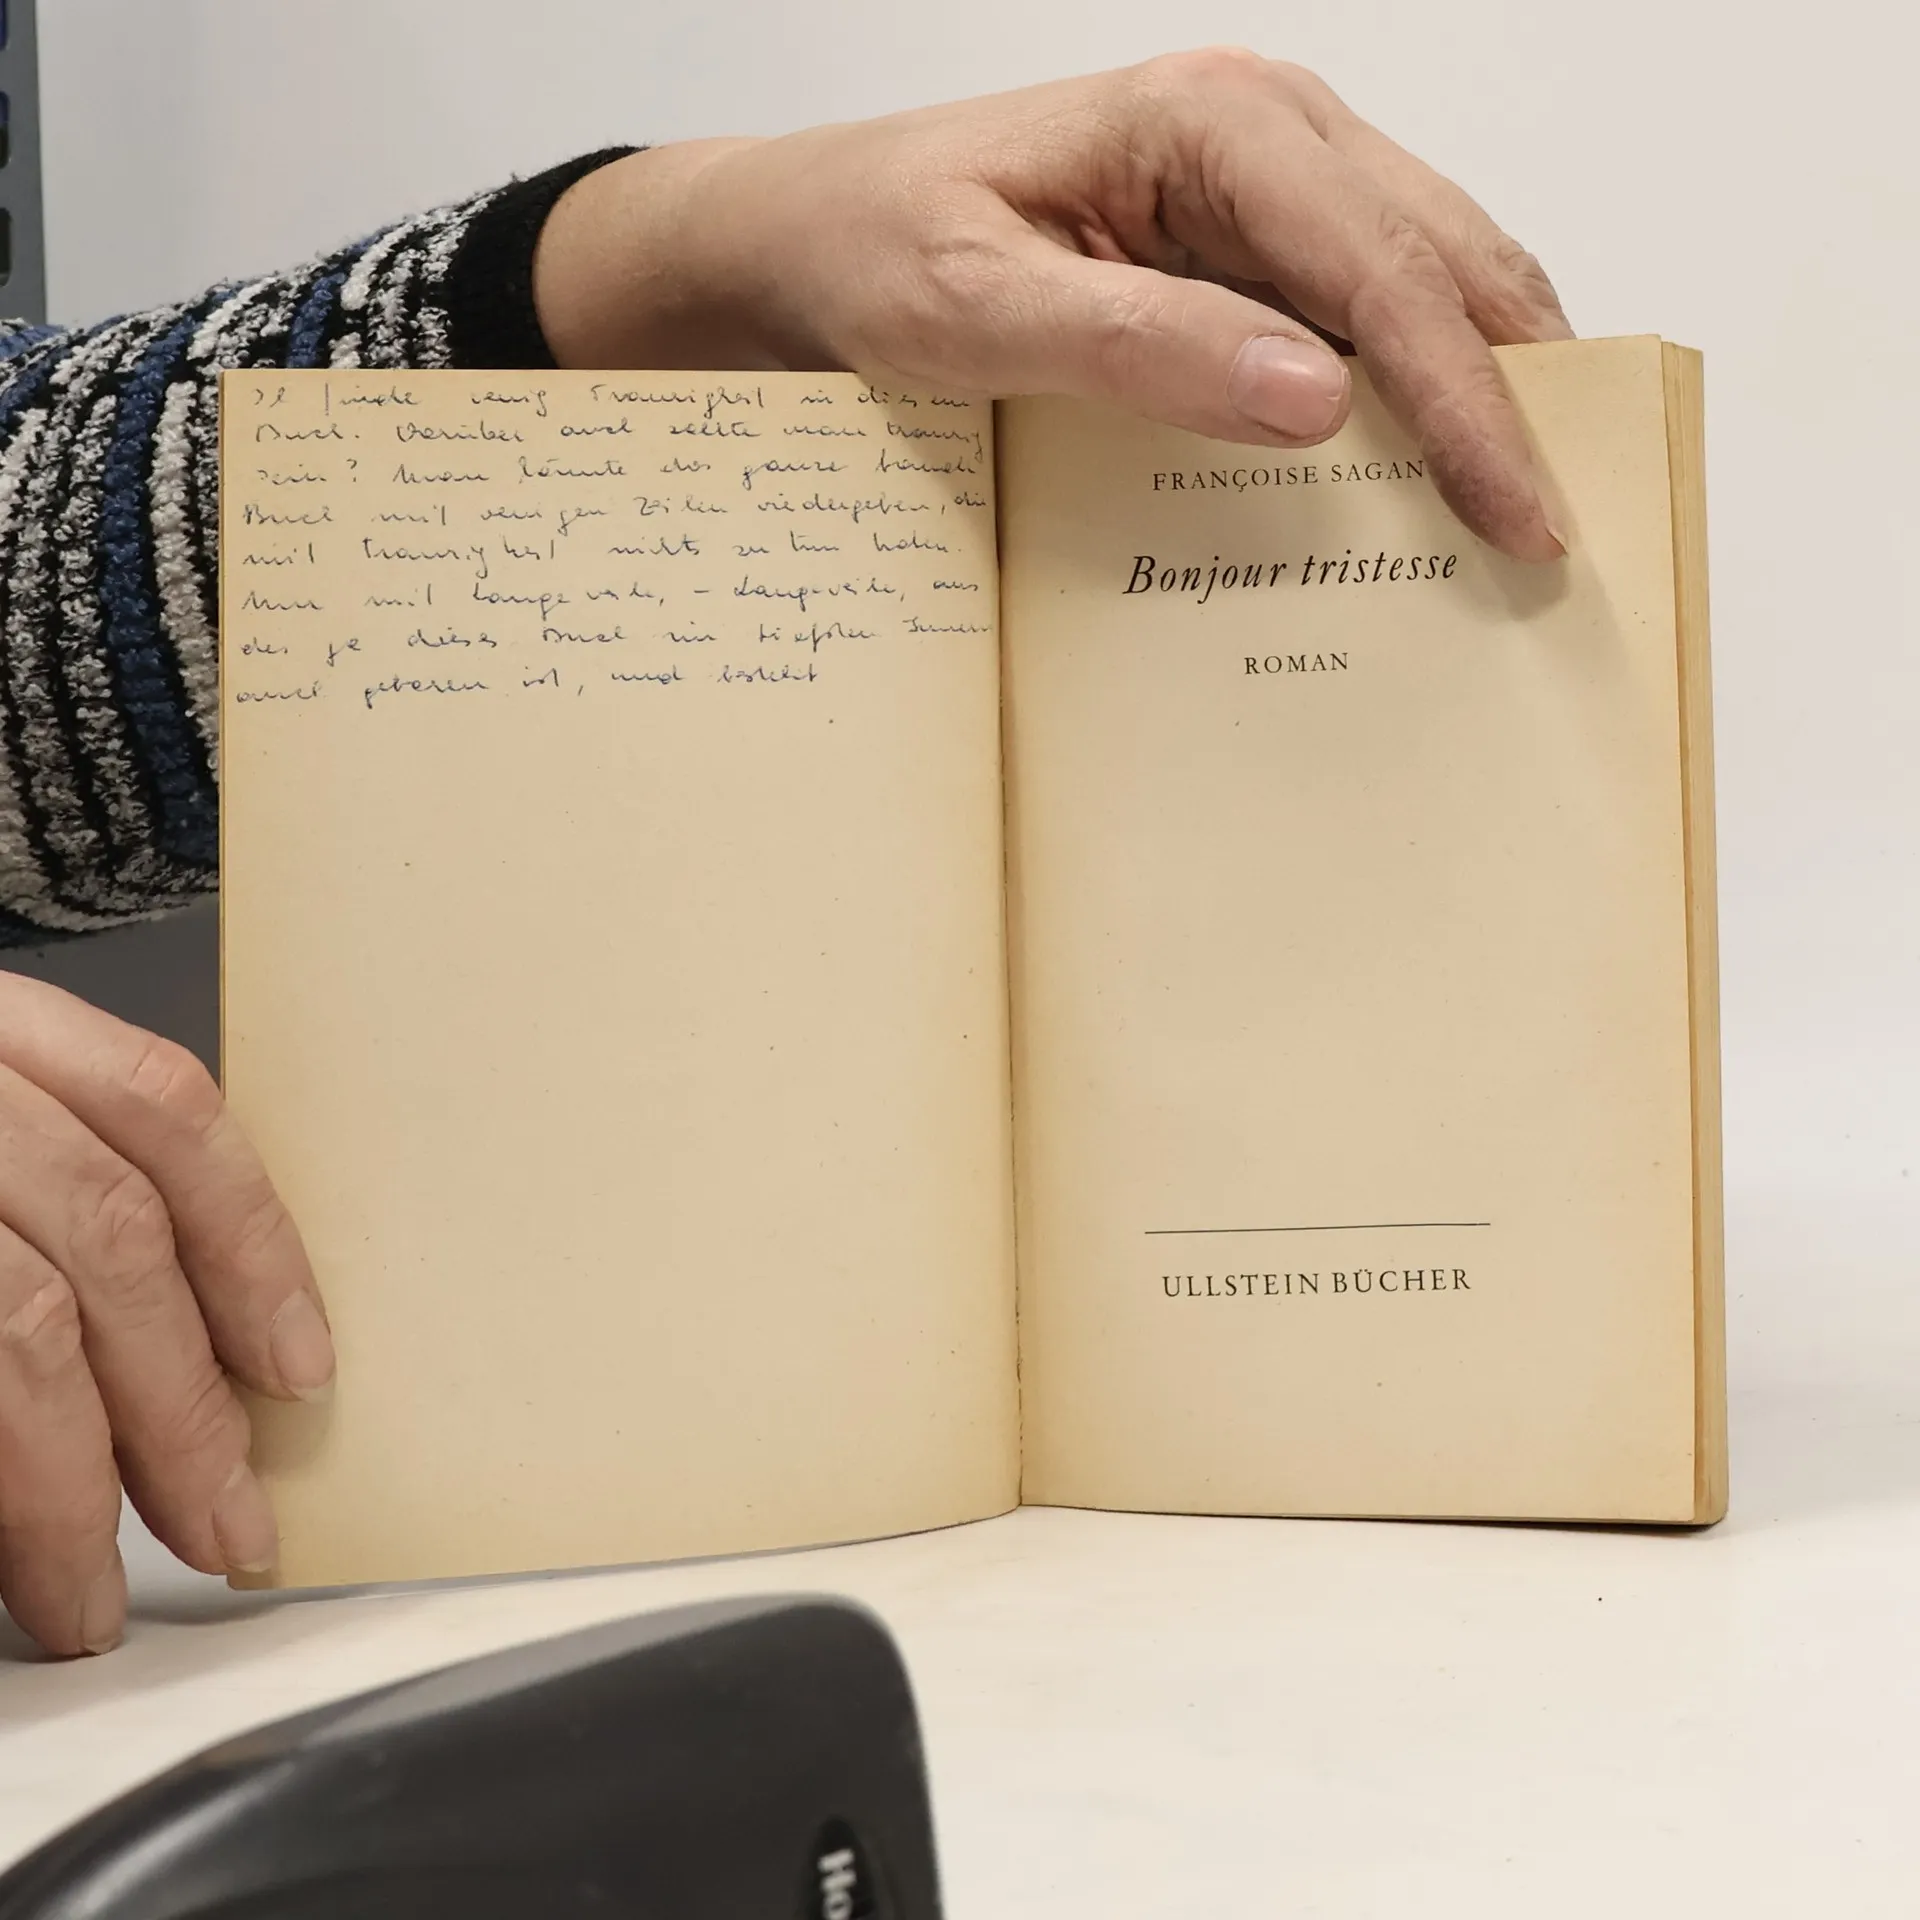 Ich finde wenig Traurigkeit in diesem
Buch. Worüber auch sollte man traurig
sein? Man könnte das ganze
Buch mit wenigen Zeilen wiedergeben, die
mit Traurigkeit nichts zu tun haben.
Nur mit Langeweile, - Langeweile, aus
der ja dieses Buch im tiefsten Innern
auch geboren ist, und besteht
FRANÇOISE SAGAN
Bonjour tristesse
ROMAN
ULLSTEIN BÜCHER
Ho